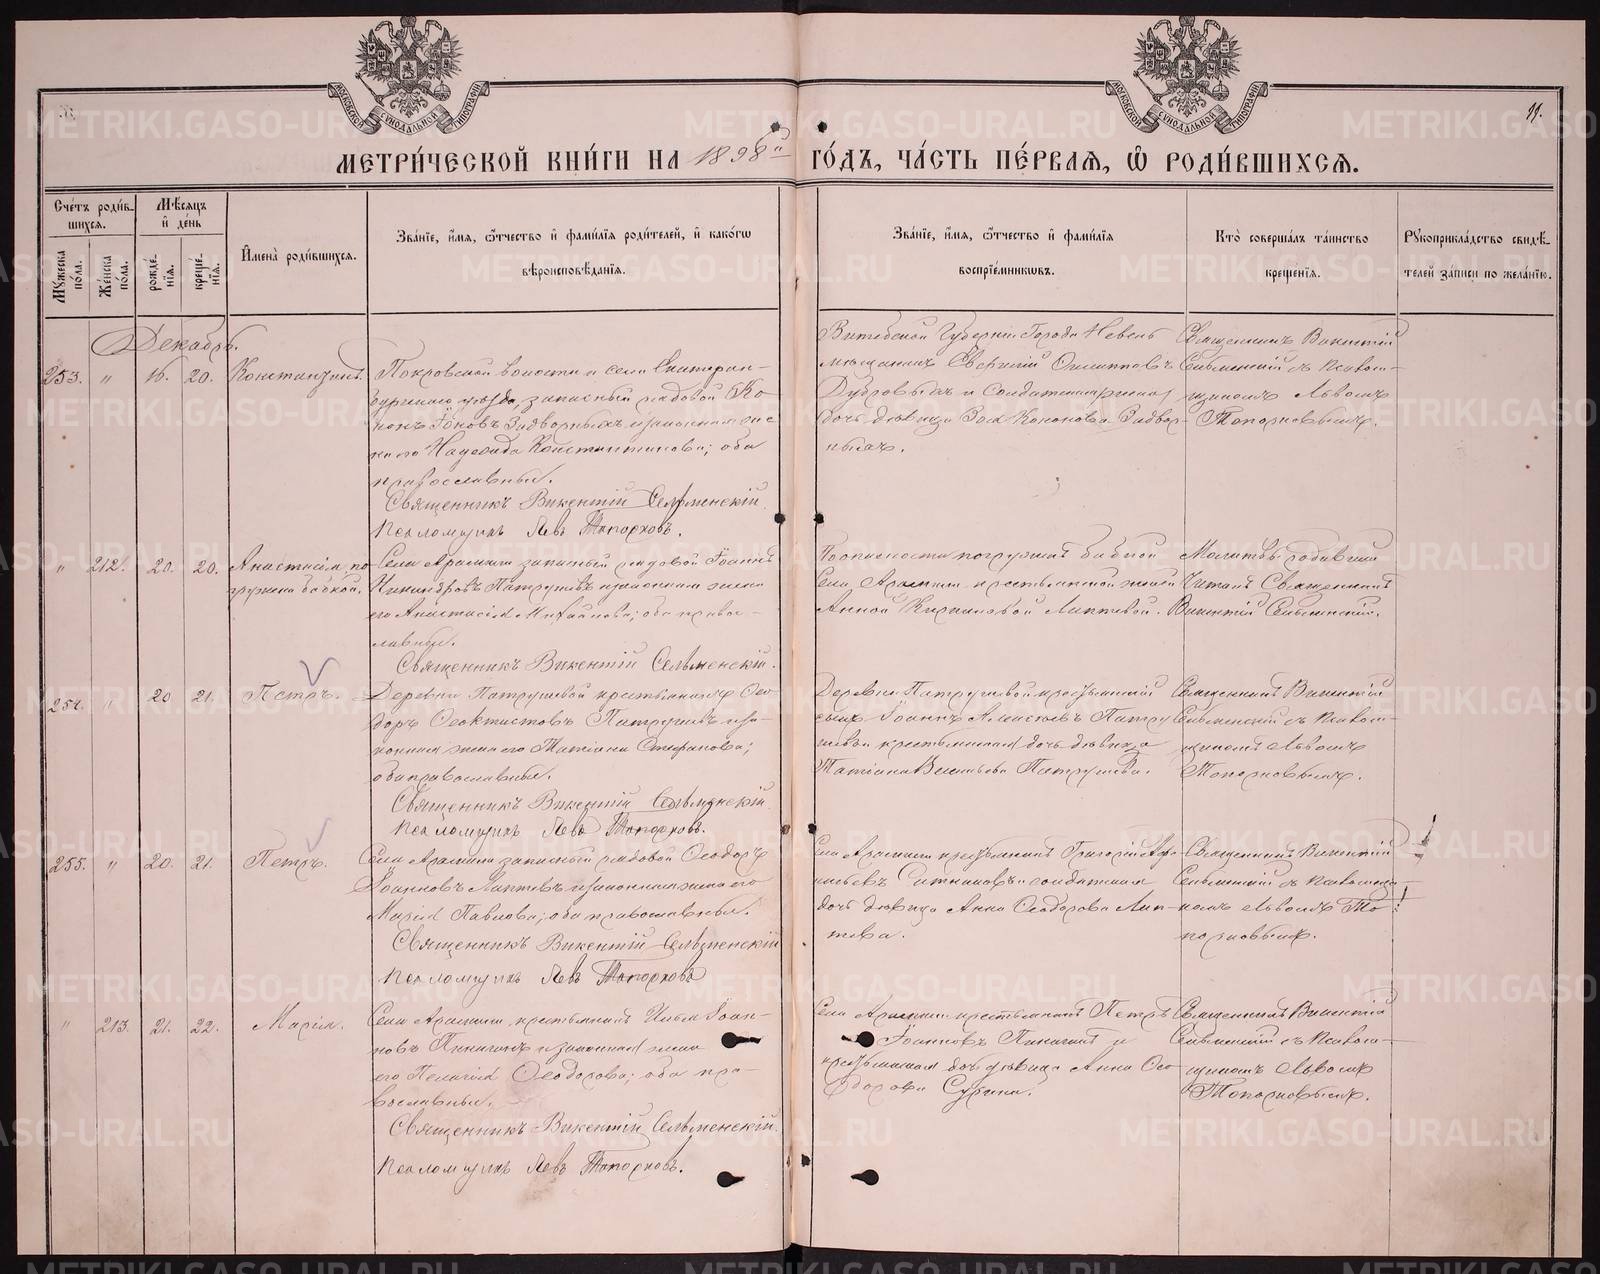 МОСКОВСКОЙ СѴНОДАЛЬНОЙ ТИПОГРАФІИ
МОСКОВСКОЙ СѴНОДАЛЬНОЙ ТИПОГРАФІИ
99.
МЕТРИ́ЧЕСКОЙ КНИ́ГИ НА 1898й ГО́ДЪ, ЧА́СТЬ ПЕ́РВАѦ, Ѽ РОДИ́ВШИХСѦ.
Сче́тъ роди́в-
шихсѧ.
Мѣ́сѧцъ
и҆ де́нь
Мꙋ́жеска по́ла.
Же́нска по́ла.
рожде́-
нїѧ.
креще́-
нїѧ.
И҆мена̀ роди́вшихсѧ.
Зва́нїе, и҆́мѧ, ѻ҆́тчество и҆ фами́лїѧ роди́телей, и҆ како́гѡ
вѣроисповѣ́данїѧ.
Зва́нїе, и҆́мѧ, ѻ҆́тчество и҆ фами́лїѧ
воспрїе́мниковъ.
Кто̀ соверша́лъ та́инство
креще́нїѧ.
Рꙋкоприкла́дство свидѣ́-
телей за́писи по жела́нїю.
Декабрь.
253. " 16. 20. Константинъ.
Покровской волости и села Екатерин-
бургскаго уѣзда, запасный рядовой Ко-
нонъ Іоновъ Задворныхъ и законная же-
на его Надежда Константинова; оба
православные.
Священникъ Викентій Сельменскій.
Псаломщикъ Левъ Топорковъ.
Витебской Губерніи Города Невель
мѣщанинъ Евгеній Филипповъ
Дубровыхъ и солдатская
дочь дѣвица Зоя Кононова Задвор-
ныхъ.
Священникъ Викентій
Сельменскій съ Псалом-
щикомъ Львомъ
Топорковымъ.
" 212. 20. 20. Анастасія, по-
гружена бабкой.
Села Арамили запасный рядовой Іоаннъ
Никандровъ Патрушевъ и законная жена
его Анастасія Михайлова; оба право-
славные.
Священникъ Викентій Сельменскій.
По опасности погружена бабкой
Села Арамили крестьянской женой
Анной Кирилловой Лаптевой.
Молитвы родившей
Читалъ Священникъ
Викентій Сельменскій.
254. " 20 21. Петръ.
Деревни Патрушевой крестьянинъ Ѳео-
доръ Ѳеоктистовъ Патрушевъ и за-
конная жена его Татіана Стефанова;
оба православные.
Священникъ Викентій Сельменскій
Псаломщикъ Левъ Топорковъ.
Деревни Патрушевой крестьянскій
сынъ Іоаннъ Алексѣевъ Патру-
шевъ и крестьянская дочь дѣвица
Татіана Васильева Патрушева.
Священникъ Викентій
Сельменскій съ Псалом-
щикомъ Львомъ
Топорковымъ.
255. " 20. 21. Петръ.
Села Арамили запасный рядовой Ѳеодоръ
Іоанновъ Лаптевъ и законная жена его
Марія Павлова; оба православные.
Священникъ Викентій Сельменскій
Псаломщикъ Левъ Топорковъ
Села Арамили крестьянинъ Григорій Афа-
насьевъ Ситниковъ и солдатская
дочь дѣвица Анна Ѳеодорова Лап-
тева.
Священникъ Викентій
Сельменскій съ Псаломщи-
комъ Львомъ То-
порковымъ.
" 213. 21. 22. Марія.
Села Арамили, крестьянинъ Илья Іоан-
новъ Пинягинъ и законная жена
его Пелагія Ѳеодорова; оба пра-
вославные.
Священникъ Викентій Сельменскій.
Псаломщикъ Левъ Топорковъ.
Села Арамили крестьянинъ Петръ
Іоанновъ Пинягинъ и
крестьянская дочь дѣвица Анна Ѳео-
дорова Сурина.
Священникъ Викентій
Сельменскій съ Псалом-
щикомъ Львомъ
Топорковымъ.
METRIKI.GASO-URAL.RU